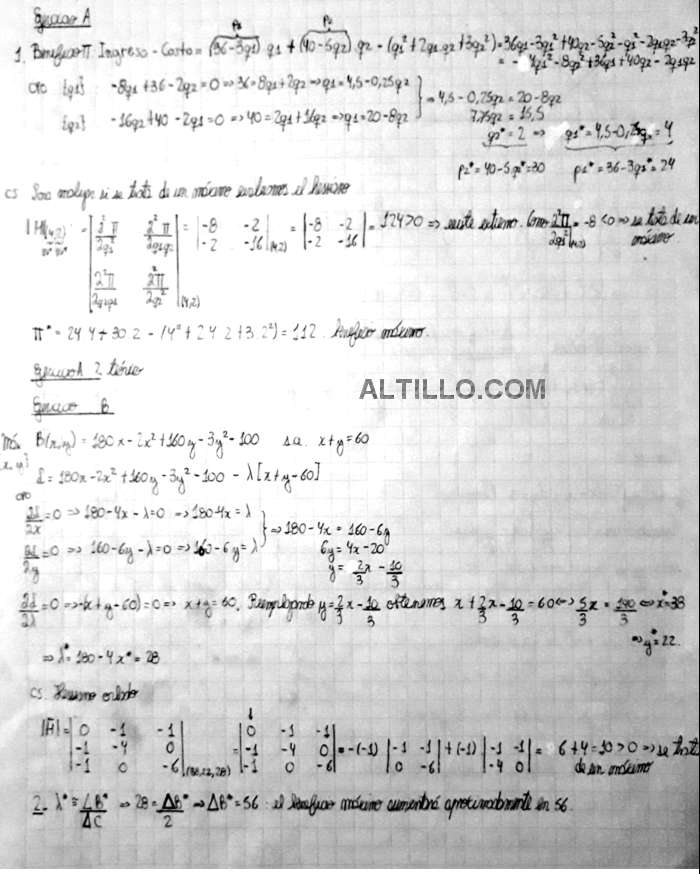 Ejercicio A
p1 p2
1. Beneficio π: Ingreso - Costo = (36-3q1) . q1 + (40-5q2) . q2 - (q1² + 2q1.q2 + 3q2²) = 36q1 - 3q1² + 40q2 - 5q2² - q1² - 2q1q2 - 3q2²
= -4q1² - 8q2² + 36q1 + 40q2 - 2q1q2
CPO {q1}: -8q1 + 36 - 2q2 = 0 ⇒ 36 = 8q1 + 2q2 ⇒ q1 = 4,5 - 0,25q2
{q2} -16q2 + 40 - 2q1 = 0 ⇒ 40 = 2q1 + 16q2 ⇒ q1 = 20 - 8q2
⇒ 4,5 - 0,25q2 = 20 - 8q2
7,75q2 = 15,5
q2* = 2 ⇒ q1* = 4,5 - 0,25q2 = 4
p2* = 40 - 5.q2* = 30 p1* = 36 - 3q1* = 24
CS Para analizar si se trata de un máximo evaluamos el hessiano
|H|(4,2) = | ∂²π/∂q1² ∂²π/∂q1q2 | = | -8 -2 | = | -8 -2 | = 124 > 0 ⇒ existe extremo. Como ∂²π/∂q1²|(4,2) = -8 < 0 ⇒ se trata de un
q1* q2* | -2 -16 |(4,2) | -2 -16 | máximo.
∂²π/∂q2q1 ∂²π/∂q2² |(4,2)
π* = 24.4 + 30.2 - (4² + 2.4.2 + 3.2²) = 112. Beneficio máximo.
Ejercicio A 2 teórico
ALTILLO.COM
Ejercicio B
Máx B(x,y) = 180x - 2x² + 160y - 3y² - 100 s.a. x + y = 60
x, y}
L = 180x - 2x² + 160y - 3y² - 100 - λ[x + y - 60]
CPO
∂L/∂x = 0 ⇒ 180 - 4x - λ = 0 ⇒ 180 - 4x = λ
∂L/∂y = 0 ⇒ 160 - 6y - λ = 0 ⇒ 160 - 6y = λ
⇒ 180 - 4x = 160 - 6y
6y = 4x - 20
y = 2/3 x - 10/3
∂L/∂λ = 0 ⇒ -(x + y - 60) = 0 ⇒ x + y = 60. Reemplazando y = 2/3 x - 10/3 obtenemos x + 2/3 x - 10/3 = 60 ⇔ 5/3 x = 190/3 ⇔ x* = 38
⇒ y* = 22.
⇒ λ* = 180 - 4x* = 28
CS. Hessiano orlado
|H̄| = | 0 -1 -1 | = | 0 -1 -1 | = -(-1) | -1 -1 | + (-1) | -1 -1 | = 6 + 4 = 10 > 0 ⇒ se trata
| -1 -4 0 | | -1 -4 0 | | 0 -6 | | -4 0 | de un máximo
| -1 0 -6 |(38,22,28) | -1 0 -6 |
2. λ* ≅ ΔB*/ΔC ⇒ 28 = ΔB*/2 ⇒ ΔB* = 56: el beneficio máximo aumentará aproximadamente en 56.